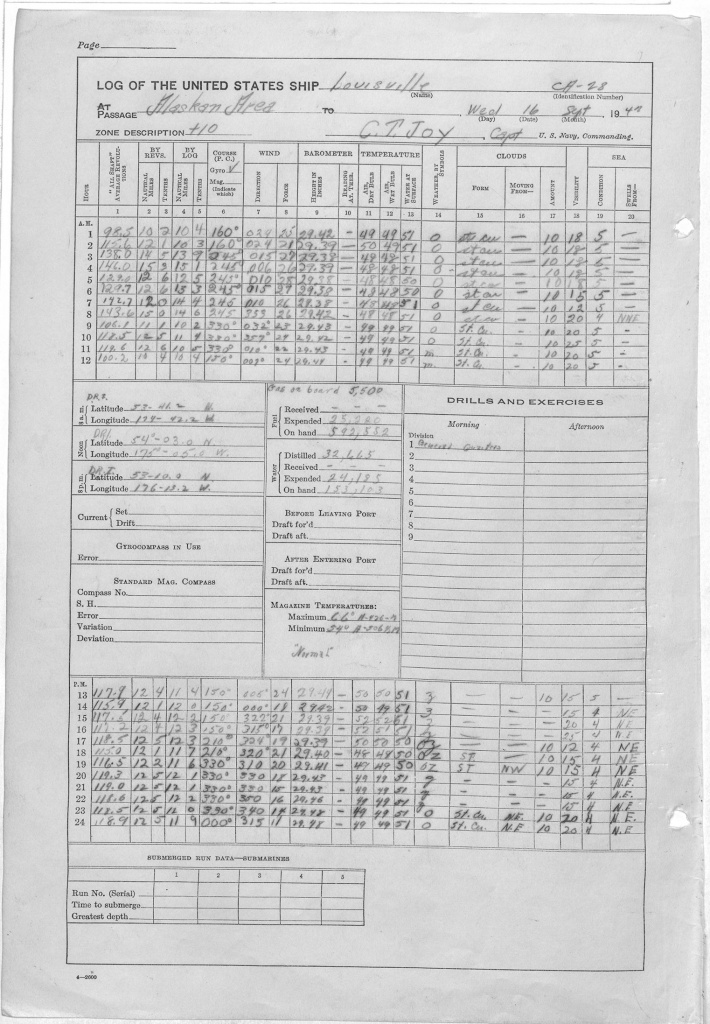 Page
LOG OF THE UNITED STATES SHIP Louisville CA-28
(Name) (Identification Number)
AT
PASSAGE Alaskan Area TO Wed 16 Sept, 194
(Day) (Date) (Month)
ZONE DESCRIPTION +10 C.T. JOY, Capt U. S. Navy, Commanding.
HOUR "ALL SHAFT" AVERAGE REVOLUTIONS BY REVS. BY LOG COURSE (P. C.) WIND BAROMETER TEMPERATURE WEATHER, BY SYMBOLS CLOUDS SEA
NAUTICAL MILES TENTHS NAUTICAL MILES TENTHS Gyro √ Mag. (Indicate which) DIRECTION FORCE HEIGHT IN INCHES READING AT. THER. AIR, DRY BULB AIR, WET BULB WATER AT SURFACE FORM MOVING FROM— AMOUNT VISIBILITY CONDITION SWELLS FROM—
1 2 3 4 5 6 7 8 9 10 11 12 13 14 15 16 17 18 19 20
A.M.
1 98.5 10 2 10 4 160° 024 29.42 — 49 49 51 0 st cu — 10 18 5 —
2 115.6 12 1 10 3 160° 024 29.39 — 50 49 51 0 st cu — 10 18 5 —
3 138.0 14 5 13 9 245° 015 29.38 — 49 48 51 0 st cu — 10 18 5 —
4 15 3 15 1 245° 006 26 29.39 — 48 48 51 0 st cu — 10 18 5 —
5 12 6 12 5 245° 010 29.38 — 48 48 50 0 st cu — 10 18 5 —
6 129.7 12 6 13 3 245° 015 — 48 48 50 0 st cu — 10 18 5 —
7 142.7 14 4 245 010 26 29.38 — 48 48 51 0 st cu — 10 12 5 —
8 143.6 15 0 14 6 245 26 29.42 — 48 48 51 0 st cu — 10 20 4 NNE
9 106.1 11 1 10 2 330° 032° 29.43 — 49 49 51 0 St. Cu. — 10 20 5 -
10 118.5 12 5 11 29.42 — 49 49 51 0 St. Cu. — 10 25 5 -
11 118.6 12 6 10 5 330° 010° 29.43 — 49 49 51 m St. Cu. - 10 20 5 -
12 100.2 10 4 10 4 150° 24 29.44 — 49 49 51 m St. Cu. - 10 20 5 -
8 a.m. D.R.T.
Latitude 53-41.2
Longitude 174-42.2 W.
Noon DRT
Latitude 54°-03.0 N.
Longitude 175°-05.0 W.
8 p.m. D.R.T.
Latitude 53-10.0 N.
Longitude 176-12.2 W.
Current Set
Drift
GYROCOMPASS IN USE
Error
STANDARD MAG. COMPASS
Compass No.
S. H.
Error
Variation
Deviation
Gas on board 5,500
Fuel
Received - - -
Expended 25,220
On hand 592,552
Water
Distilled 32,165
Received - - -
Expended 24,185
On hand 155,103
BEFORE LEAVING PORT
Draft for'd
Draft aft.
AFTER ENTERING PORT
Draft for'd
Draft aft.
MAGAZINE TEMPERATURES:
Maximum 66°
Minimum 54°
"Normal"
DRILLS AND EXERCISES
Morning Afternoon
Division
1 General Quarters
2
3
4
5
6
7
8
9
P.M.
13 117.9 12 4 11 4 150° 005° 24 29.44 — 50 50 51 — — 10 15 5 -
14 115.9 12 1 12 0 150° 000° 18 29.42 — 50 49 51 — — — 15 4 NE
15 12 4 12 2 150 322° 21 29.39 — 52 52 51 — — — 20 4 NE
16 12 4 12 3 150° 315° 29.39 — 52 51 51 — — — 25 4 NE
17 118.5 12 5 12 3 210° 324 19 29.39 — 50 50 50 — — 10 12 4 NE
18 115.0 12 1 11 7 210° 320° 21 29.40 — 48 48 50 OZ ST — 10 15 4 NE
19 116.5 12 2 11 6 330° 310 20 29.41 — 49 49 50 OZ ST NW 10 15 4 NE
20 119.3 12 5 12 1 330° 330 18 29.43 — 49 49 51 — — — 15 4 N.E.
21 119.0 12 5 12 1 330° 330 15 29.43 — 49 49 51 — — — 15 4 N.E.
22 118.6 12 5 12 2 330° 350 16 29.46 — 49 49 51 — — — 15 4 N.E.
23 118.5 12 5 12 0 330° 340 29.48 — 49 49 51 0 St. Cu. NE. 10 20 4 N.E.
24 118.9 12 5 11 9 000° 315 29.48 — 49 49 51 0 St. Cu. N.E 10 20 4 N.E
SUBMERGED RUN DATA—SUBMARINES
1 2 3 4 5
Run No. (Serial)
Time to submerge
Greatest depth
4—2600